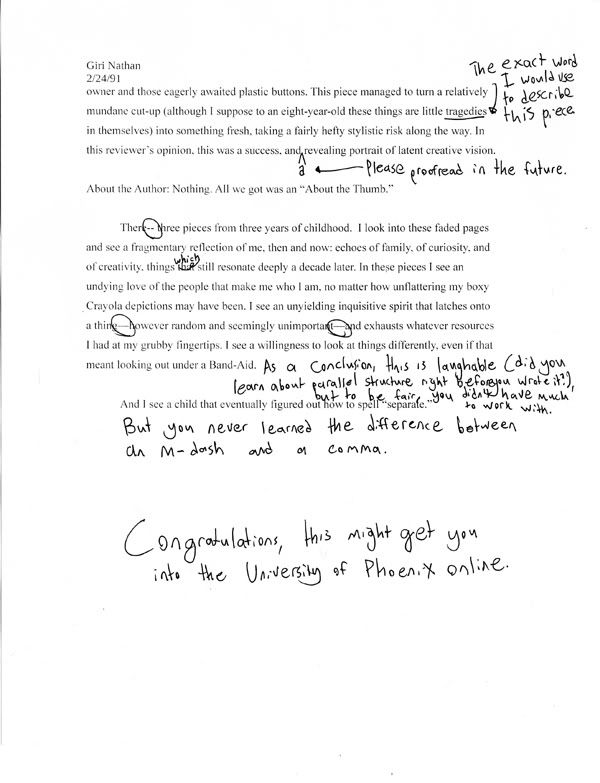 Giri Nathan
2/24/91
The exact word
I would use
to describe
this piece
owner and those eagerly awaited plastic buttons. This piece managed to turn a relatively
mundane cut-up (although I suppose to an eight-year-old these things are little tragedies
in themselves) into something fresh, taking a fairly hefty stylistic risk along the way. In
this reviewer's opinion, this was a success, and revealing portrait of latent creative vision.
a
Please proofread in the future.
About the Author: Nothing. All we got was an "About the Thumb."
There-- three pieces from three years of childhood. I look into these faded pages
and see a fragmentary reflection of me, then and now: echoes of family, of curiosity, and
which
of creativity, things that still resonate deeply a decade later. In these pieces I see an
undying love of the people that make me who I am, no matter how unflattering my boxy
Crayola depictions may have been. I see an unyielding inquisitive spirit that latches onto
a thing—however random and seemingly unimportant—and exhausts whatever resources
I had at my grubby fingertips. I see a willingness to look at things differently, even if that
meant looking out under a Band-Aid.
As a conclusion, this is laughable (did you
learn about parallel structure right before you wrote it?),
but to be fair, you didn't have much
to work with.
And I see a child that eventually figured out how to spell "separate."
But you never learned the difference between
an M-dash and a comma.
Congratulations, this might get you
into the University of Phoenix online.